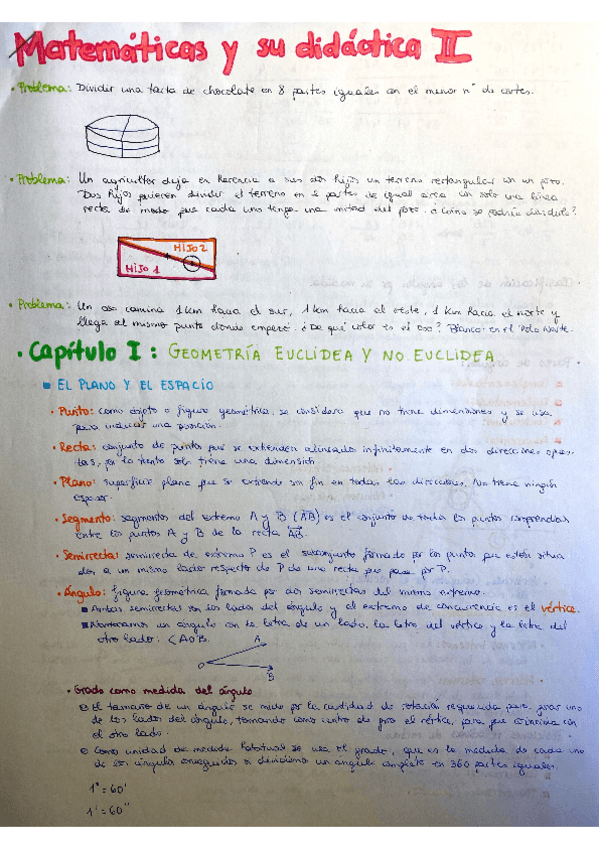 Matemáticas y su didáctica II
• Problema: Dividir una tarta de chocolate en 8 partes iguales con el menor nº de cortes.
• Problema: Un agricultor deja en herencia a sus dos hijos un terreno rectangular con un pozo.
Dos hijos quieren dividir el terreno en 2 partes de igual área con solo una línea
recta de modo que cada uno tenga una mitad del pozo. ¿Cómo se podría dividirlo?
HIJO 2
HIJO 1
• Problema: Un oso camina 1 km hacia el sur, 1 km hacia el oeste, 1 km hacia el norte y
llega al mismo punto donde empezó. ¿De qué color es el oso? Blanco: en el Polo Norte.
• Capítulo I: GEOMETRÍA EUCLIDEA Y NO EUCLIDEA
EL PLANO Y EL ESPACIO
• Punto: como objeto o figura geométrica, se considera que no tiene dimensiones y se usa
para indicar una posición.
• Recta: conjunto de puntos que se extienden alineados infinitamente en dos direcciones opues-
tas, por lo tanto solo tiene una dimensión.
• Plano: superficie plana que se extiende sin fin en todas las direcciones. No tiene ningún
espesor.
• Segmento: segmentos del extremo A y B (AB) es el conjunto de todos los puntos comprendidos
entre los puntos A y B de la recta AB.
• Semirrecta: semirrecta de extremo P es el subconjunto formado por los puntos que están situa
dos a un mismo lado respecto de P de una recta que pasa por P.
• Ángulo: figura geométrica formada por dos semirrectas del mismo extremo.
Ambas semirrectas son los lados del ángulo y al extremo de concurrencia es el vértice.
Nombramos un ángulo con la letra de un lado, la letra del vértice y la letra del
otro lado: ∢AOB.
A
O
B
• Grado como medida del ángulo
El tamaño de un ángulo se mide por la cantidad de rotación requerida para girar uno
de los lados del ángulo, tomando como centro de giro el vértice, para que coincida con
el otro lado.
Como unidad de medida habitual se usa el grado, que es la medida de cada uno
de los ángulos conseguidos si dividimos un ángulo completo en 360 partes iguales.
1° = 60'
1' = 60''